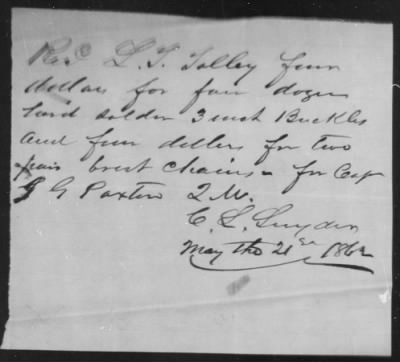 Recd L. T. Tolley four
dollars for four dozen
hard solder 3 inch Buckles
and four dollers for two
pair brest chains - for Cap
J G Paxton Q.M.
C. L. Snyder
May the 21st 1862